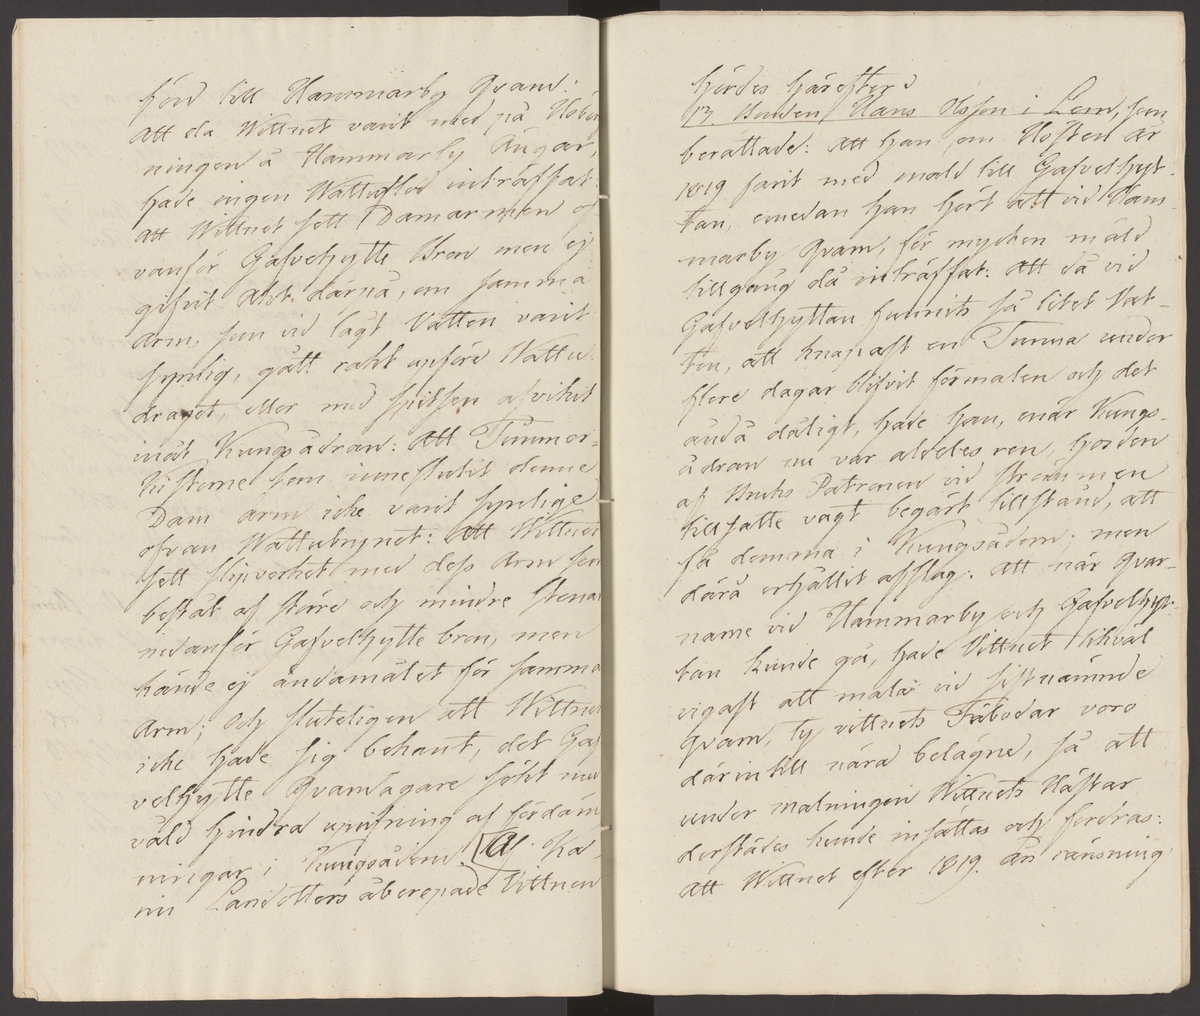 förd till Hammarby Qvarn:
Att da Wittnet varit med på Höber
ningen å Hammarby Ängar,
hade ingen Wattuflod inträffat:
att Wittnet sett Damarmen of
vanför Gafvelhytte Bron men ej
gifvit akt därpå, om samma
Arm, som vid lågt Vatten varit
synlig, gått rakt upföre Wattu-
draget, eller med spitsen afvikit
inåt Kungsådran: Att Timmer-
kistorne som inneslutit denne
Dam arm icke varit synlige
ofvan Wattubrynet: Att Wittnet
sett slipverket med dess Arm som
bestått af större och mindre stenar
nedanför Gafvelhytte bron, men
kände ej ändamålet för samma
Arm; och sluteligen att Wittnet
icke hade sig bekant, det Gaf
velhytte Qvarnägare sökt med
våld hindra uprifning af fördäm
ningar i Kungsådern. Af Kä-
ner Landtters åberopade Vittnen
hördes härefter
13. Bonden Hans Olsson i Lem, som
berättade: att han, om Hösten år
1819 farit med mald till Gafvelhyt-
tan, emedan han hört att vid Ham-
marby Qvarn, för mycken mäld
tillgång då inträffat: Att då vid
Gafvelhyttan funnits så litet Vat-
ten, att knapast en Tunna under
flere dagar blifvit förmalen och det
ändå dåligt, hade han, enär Kungs-
ådran nu var aldeles ren, hos den
af Bruks Patronen vid strömmen
tillsatte vagt begärt tillstånd, att
få dämma i Kungsådern; men
därå erhållit afslag: Att när Qvar-
name vid Hammarby och Gafvelhyt-
tan kunde gå, hade Vittnet likväl
vigast att mala vid sistnämnde
Qvarn, ty vittnets Fäbodar voro
därintill nära belägne, så att
under malningen Wittnets Hästar
derstädes kunde insättas och fordras:
Att Wittnet efter 1819. Års ränsning